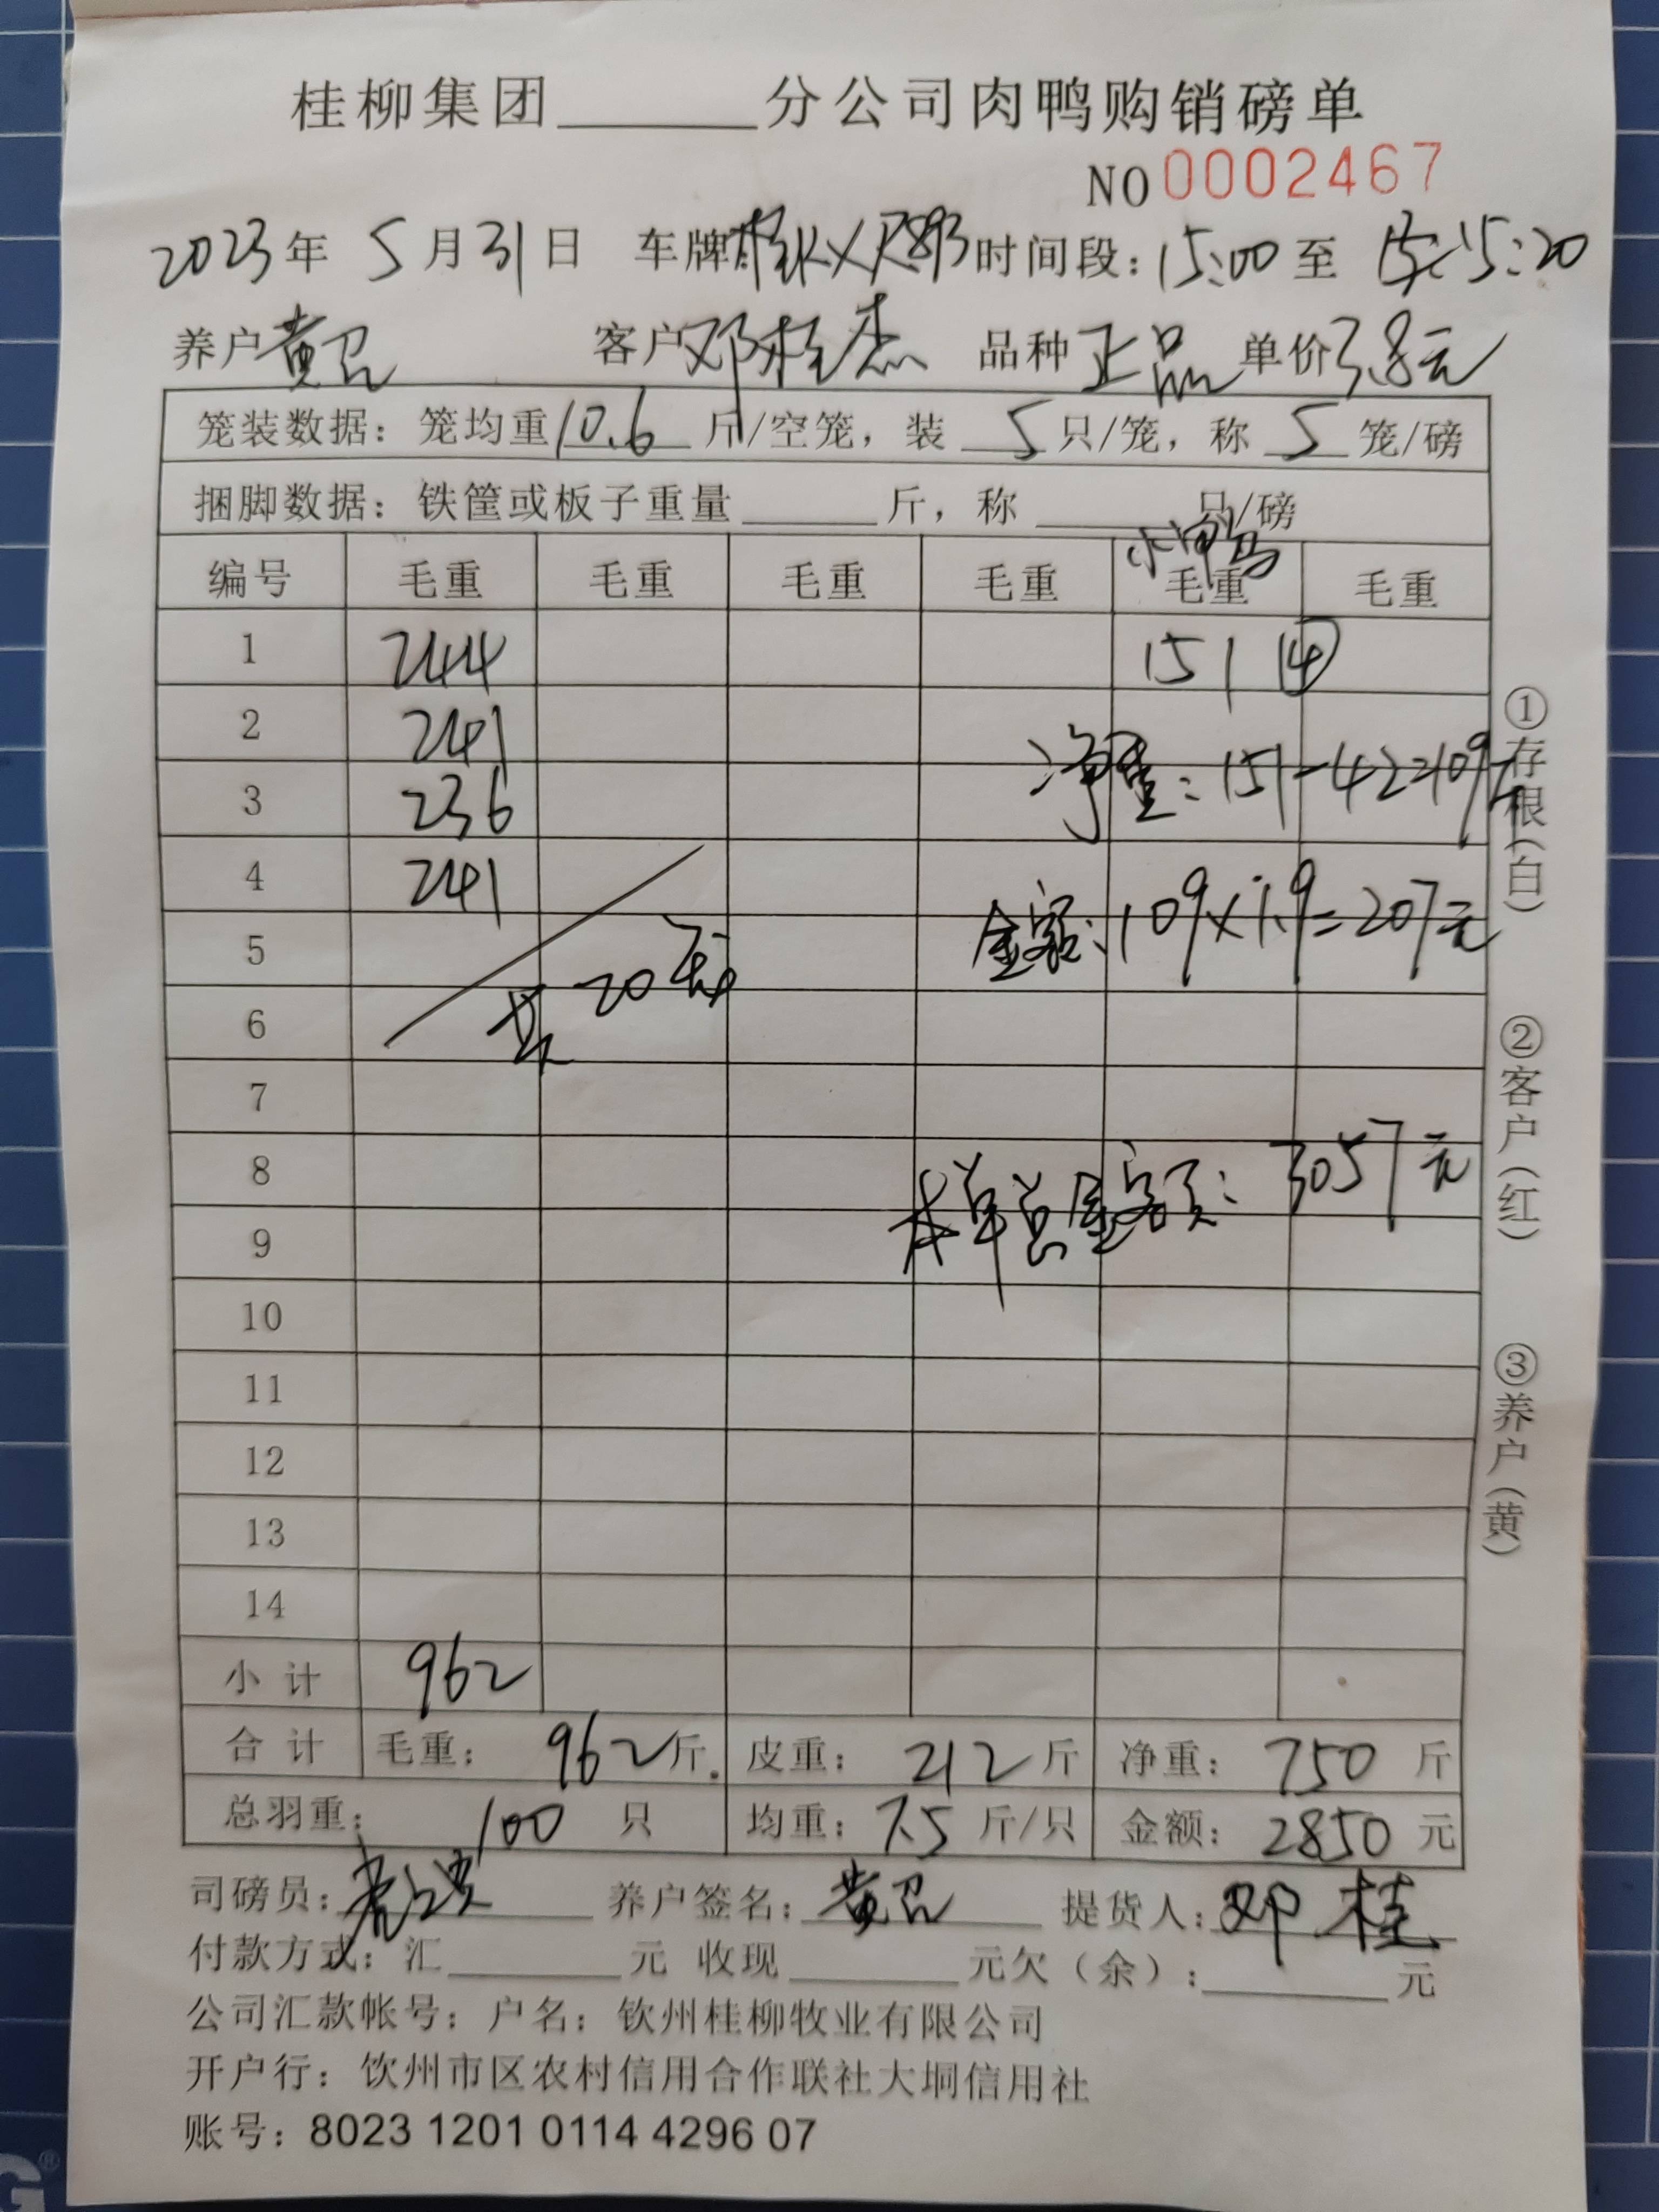 桂柳集团______分公司肉鸭购销磅单
NO 0002467
2023年 5月31日 车牌 时间段：15:00 至 15:20
养户 黄 客户 邓桂杰 品种 正品 单价 3.8元
笼装数据：笼均重10.6斤/空笼，装 5 只/笼，称 5 笼/磅
捆脚数据：铁筐或板子重量______斤，称______只/磅
小鸭
编号 毛重 毛重 毛重 毛重 毛重 毛重
1 244 151 ⑭
2 241
净重：151-42=109斤
3 236
4 241
金额：109×1.9=207元
5
共20笼
6
7
8
本单总金额：3057元
9
10
11
12
13
14
小计 962
合计 毛重：962斤. 皮重：212斤 净重：750斤
总羽重：100只 均重：7.5斤/只 金额：2850元
司磅员： 养户签名：黄 提货人：邓桂
付款方式：汇______元 收现______元欠（余）：______元
公司汇款帐号：户名：钦州桂柳牧业有限公司
开户行：饮州市区农村信用合作联社大垌信用社
账号：8023 1201 0114 4296 07
①存根（白）
②客户（红）
③养户（黄）